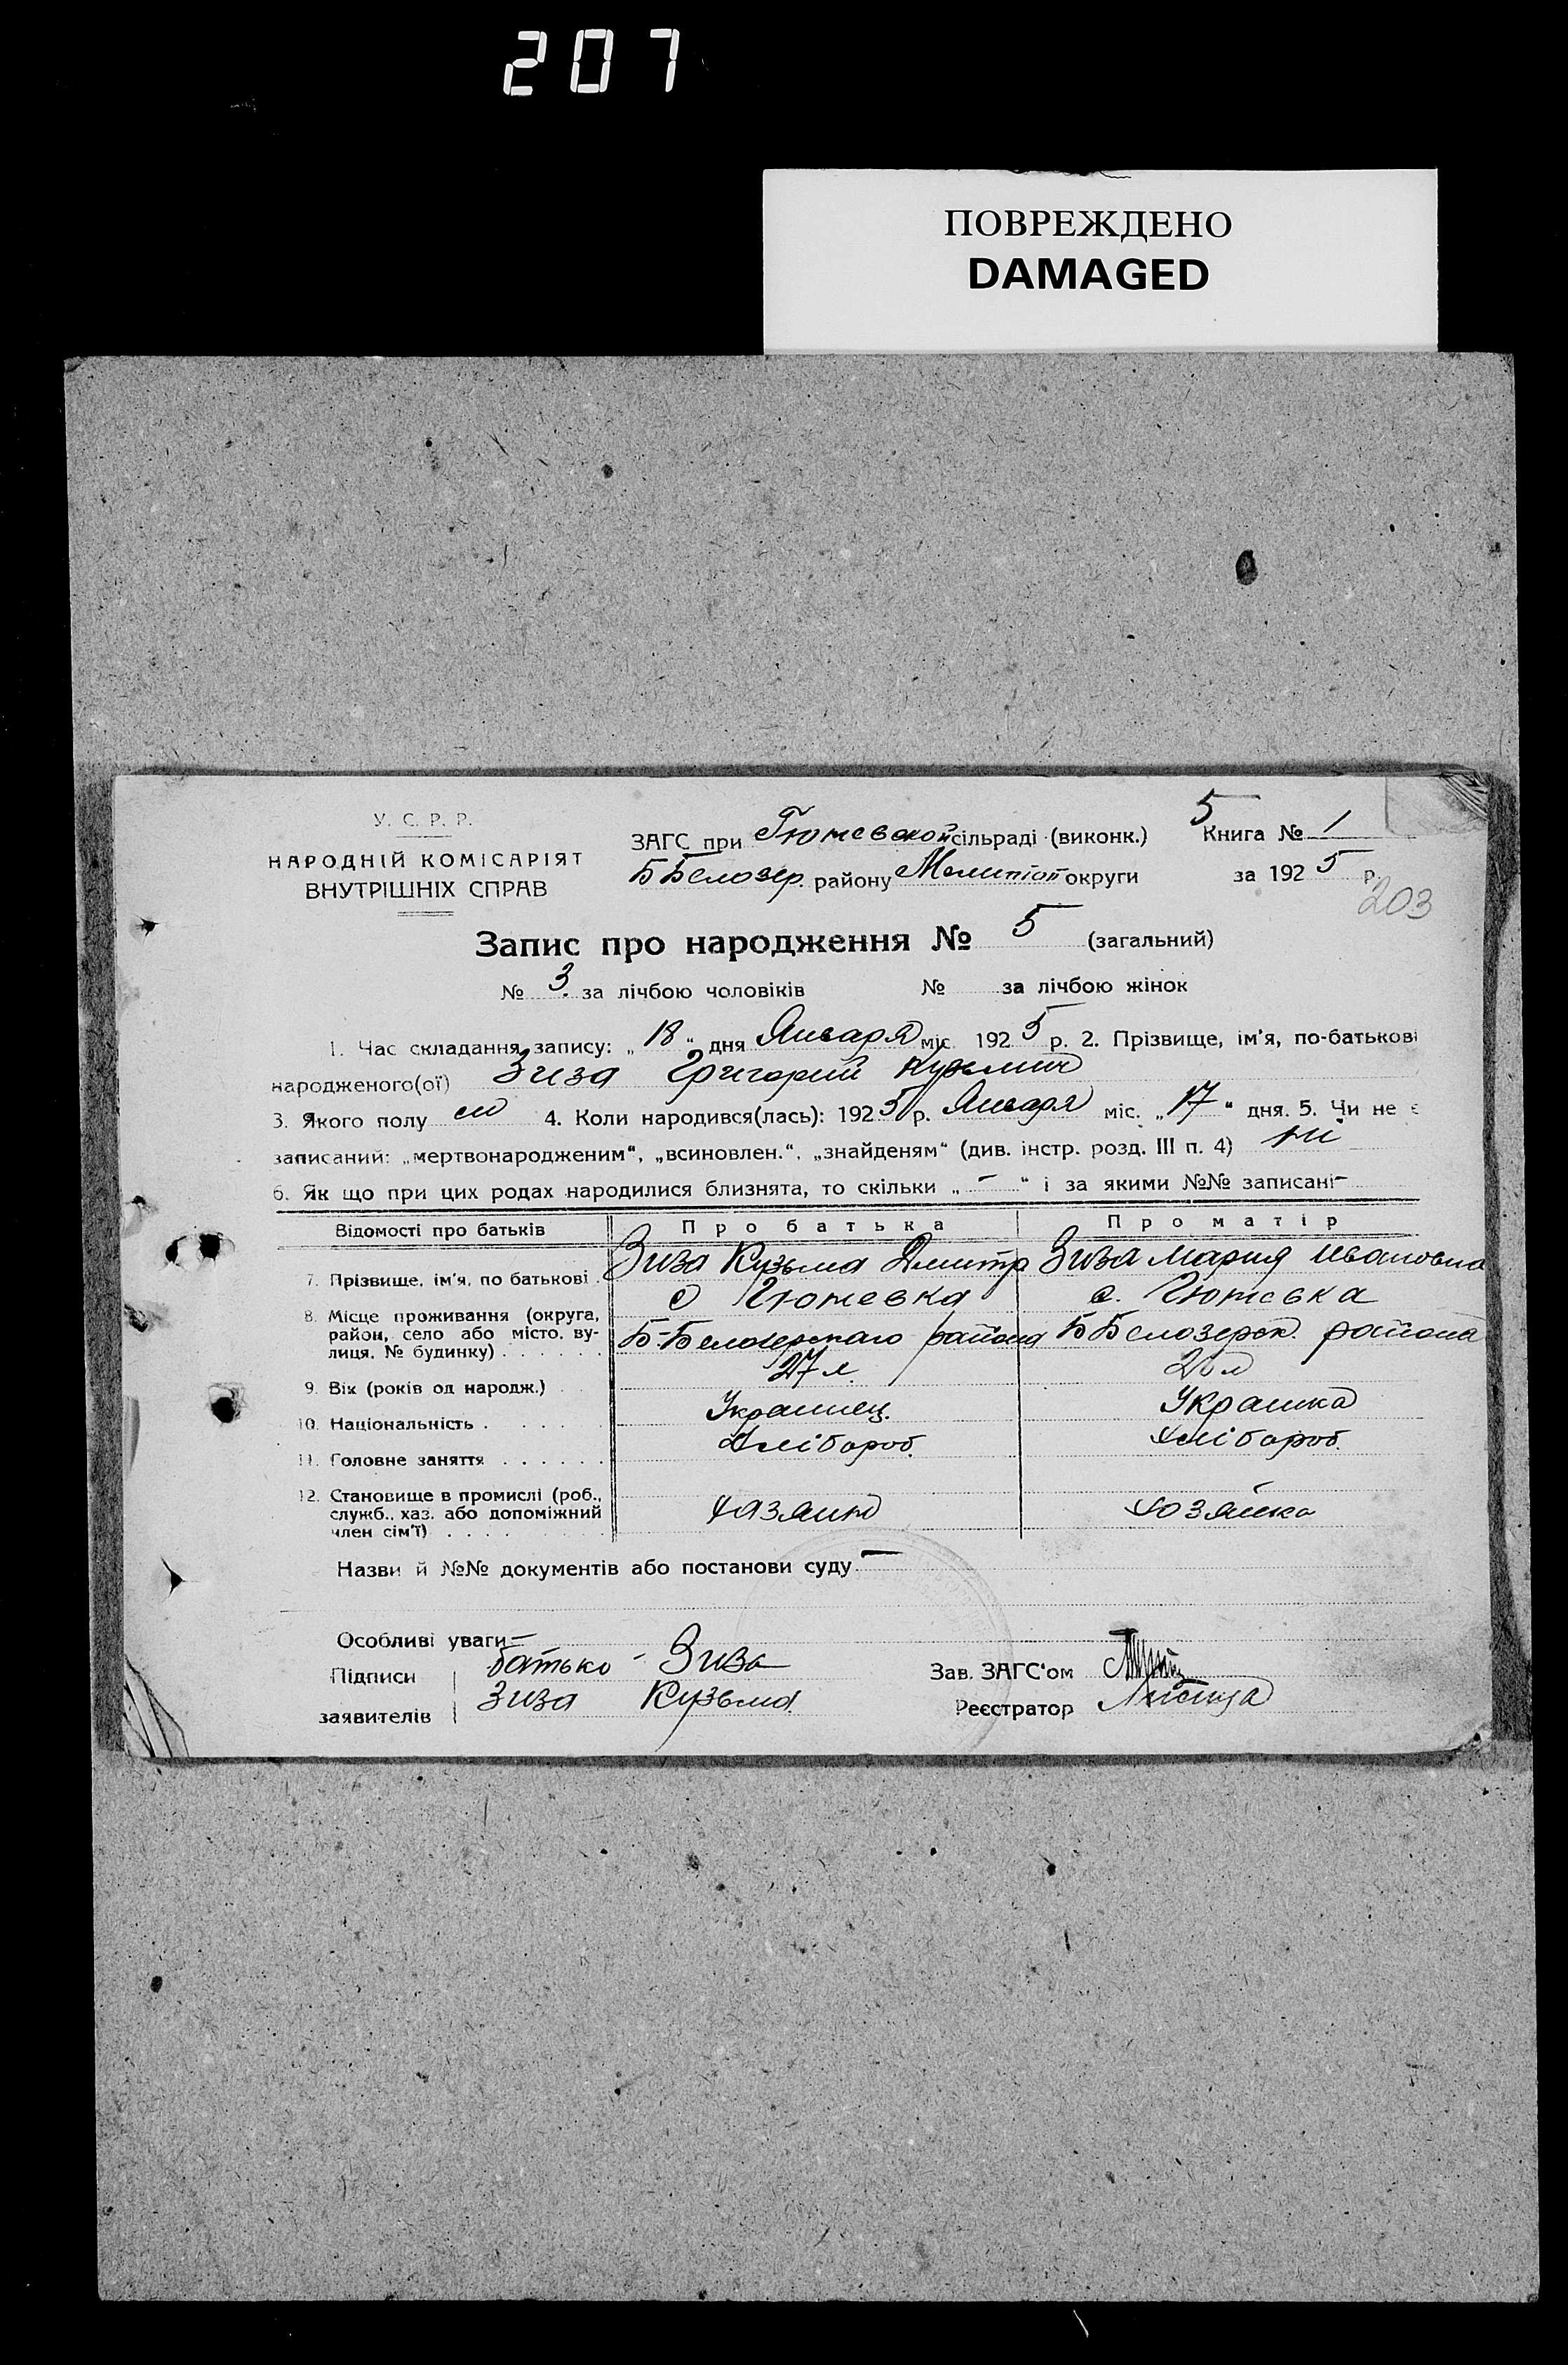 207
ПОВРЕЖДЕНО
DAMAGED
У. С. Р. Р.
НАРОДНІЙ КОМІСАРІЯТ
ВНУТРІШНІХ СПРАВ
ЗАГС при Гюневской сільраді (виконк.)
ББелозер. району Мелитіоп округи
5
Книга № 1
за 1925 р.
203
Запис про народження № 5 (загальний)
№ 3. за лічбою чоловіків № за лічбою жінок
1. Час складання запису: „18“ дня Января міс. 1925 р. 2. Прізвище, ім'я, по-батькові
народженого(ої) Зиза Григорий Кузьмич
3. Якого полу м 4. Коли народився(лась): 1925 р. Января міс. „17“ дня. 5. Чи не є
записаний: „мертвонародженим“, „всиновлен.“, „знайденям“ (див. інстр. розд. III п. 4) ні
6. Як що при цих родах народилися близнята, то скільки „ - “ і за якими №№ записані -
Відомості про батьків Про батька Про матір
7. Прізвище, ім'я, по батькові . Зиза Кузьма Дмитр Зиза Мария Ивановна
8. Місце проживання (округа, район, село або місто, вулиця, № будинку) . . . . . . с Гюневка с. Гюневка
Б-Белозерскаго района ББелозерск. района
9. Вік (років од народж.) 27 л. 20 л
10. Національність . . . . . Украинец. Украинка
11. Головне заняття . . . . . . Хлібороб. Хлібороб.
12. Становище в промислі (роб., служб., хаз. або допоміжний член сім'ї) . . . . хазяин хозяйка
Назви й №№ документів або постанови суду -
Особливі уваги -
Підписи батько - Зиза
заявителів Зиза Кузьма.
Зав. ЗАГС'ом
Реєстратор Лисица